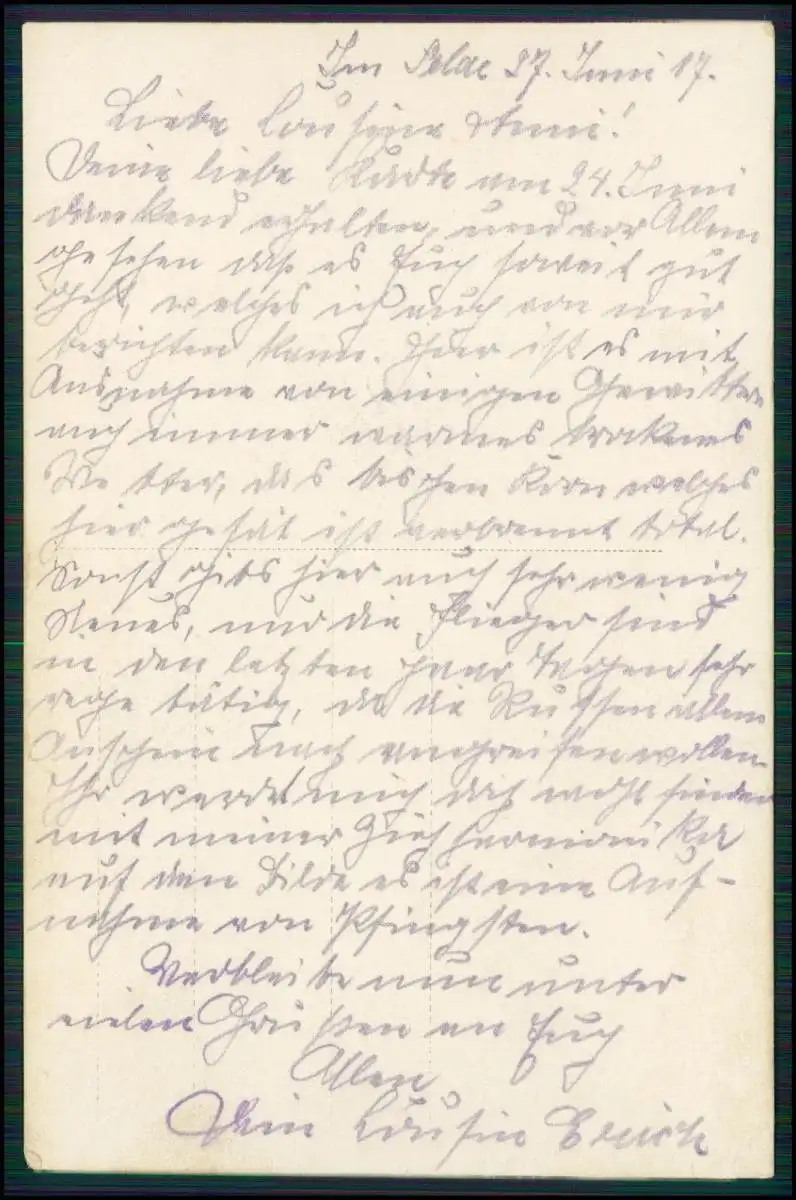 Im Felde 27. Juni 17.
Liebe Cousine Anni!
Deine liebe Karte am 24. Juni
dankend erhalten, und vor Allem
gesehen daß es Euch soweit gut
geht, welches ich auch von mir
berichten kann. Hier ist es mit
Ausnahme von einigen Gewittern
auch immer warmes trockenes
Wetter, das bischen Korn welches
hier gesät ist verbrennt total.
Sonst gibts hier auch sehr wenig
Neues, nur die Flieger sind
in den letzten paar Tagen sehr
rege tätig, da die Russen allem
Anschein nach angreifen wollen.
Ihr werdet mich doch wohl finden
mit meiner Ziehharmonika
auf dem Bilde es ist eine Auf-
nahme von Pfingsten.
Verbleibe nun unter
vielen Grüßen an Euch
Allen
Dein Cousin Erich